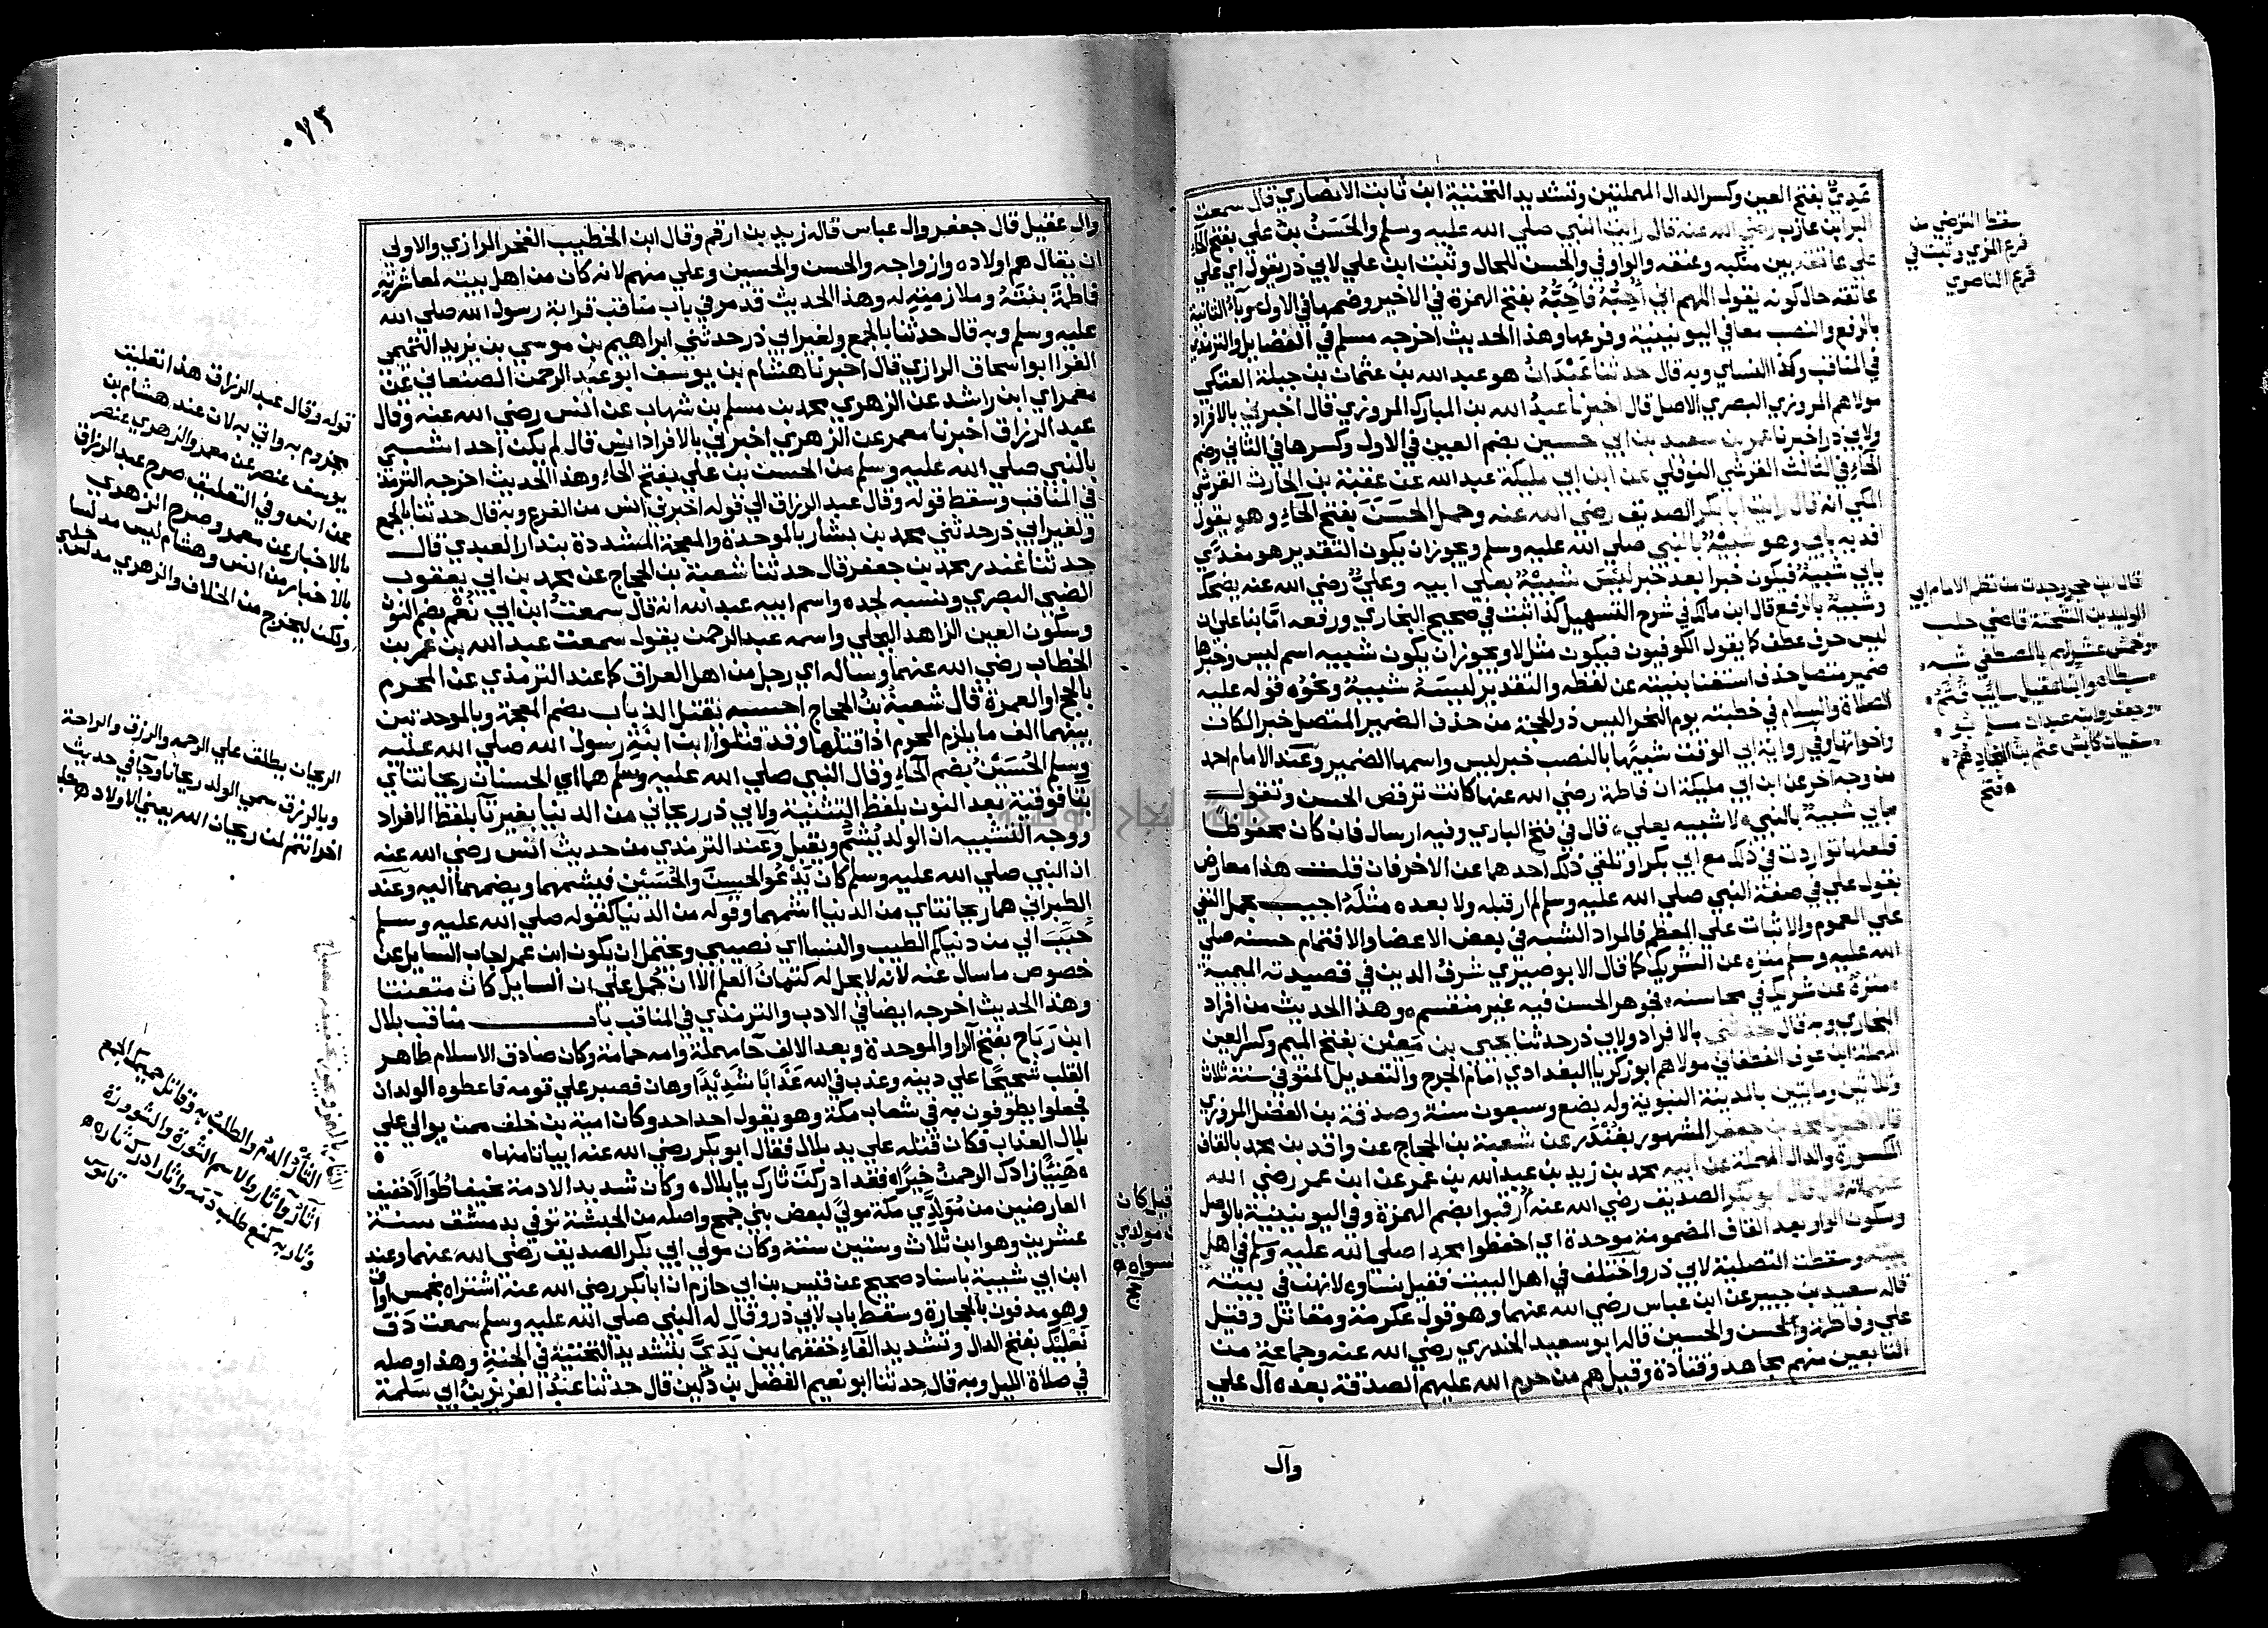 عَدِيٌّ بفتح العين وكسر الدال المهملتين وتشديد التحتية ابن ثابت الانصاري قال سمعت
البرا بن عازب رضي الله عنه قال رايت النبي صلي الله عليه وسلم والحَسَنُ بن علي بفتح الحاء
علي عاتقه بين منكبه وعنقه والواو في والحسن للحال وثبت ابن علي لابي ذر يقول اي علي
عاتقه حال كونه يقول اللهم اني اُحِبُّهُ فاَحِبَّهُ بفتح الهمزة في الاخير وضمها في الاول وباء الثانية
بالرفع والنصب معا في اليونينية وفرعها وهذا الحديث اخرجه مسلم في الفضايل والترمذي
في المناقب وكذا النساي وبه قال حدثنا عَبْدَانُ هو عبد الله بن عثمان بن جبلة العتكي
مولاهم المروزي البصري الاصل قال اخبرنا عبدُ الله بن المبارك المروزي قال اخبرني بالافراد
ولابي ذر اخبرنا عمر بن سعيد بن ابي حسين بضم العين في الاول وكسرها في الثاني وضم
الحاء في الثالث القرشي النوفلي عن ابن ابي مليكة عبد الله عن عقبة بن الحارث القرشي
المكي انه قال رايت ابا بكر الصديق رضي الله عنه وحمل الحَسَنَ بفتح الحاء وهو يقول
افديه بابي وهو شبيهٌ بالنبي صلي الله عليه وسلم ويجوز ان يكون التقدير هو مفدَّي
بابي شبيهٌ فيكون خبرا بعد خبر ليْسَ شبيهٌ بعلي ابيه وعليٌّ رضي الله عنه يضحك
وشبيهٌ بالرفع قال ابن مالك في شرح التسهيل كذا ثبت في صحيح البخاري ورفعه امّا بناعلي ان
ليس حرف عطف كما يقول الكوفيون فيكون مثل لا ويجوز ان يكون شبيه اسم ليس وخبرها
ضمير متصل حذف استغنا بنيته عن لفظه والتقدير ليسَهُ شبيهٌ ونحوُه قوله عليه
الصلاة والسلام في خطبته يوم النحر اليس ذو الحجة من حذف الضمير المتصل خبر الكان
واخواتها وفي رواية ابي الوقت شبيهًا بالنصب خبر ليس واسمها الضمير وعند الامام احمد
من وجه آخر عن ابن ابي مليكة ان فاطمة رضي الله عنها كانت ترقص الحسن وتقول
بابي شبيهٌ بالنبي، لا شبيه بعلي، قال في فتح الباري وفيه ارسال فان كان محفوظا
فلعلها تواردت في ذلك مع ابي بكر او تلقي ذلك احدهما عن الاخر فان قلت هذا معارض
بقول علي في صفة النبي صلي الله عليه وسلم لم ار قبله ولا بعده مثلَهُ اجيب بحمل النفي
علي العموم والاثبات علي المعظم فالمراد الشبه في بعض الاعضا والا فتمام حسنه صلي
الله عليه وسلم منزه عن الشريك كما قال الابوصيري شرف الدين في قصيدته الميمية
منزهٌ عن شريك في محاسنه، فجوهر الحسن فيه غير منقسم، وهذا الحديث من افراد
البخاري وبه قال حدثني بالافراد ولابي ذر حدثنا يحيي بن مَعِيْن بفتح الميم وكسر العين
المهملة ابن عون الغطفاني مولاهم ابو زكريا البغدادي امام الجرح والتعديل المتوفي سنة ثلاث
وثلاثين ومايتين بالمدينة النبوية وله بضع وسبعون سنة وصدقة بن الفضل المروزي
قالا اخبرنا محمد بن جعفر المشهور بغُنْدَر عن شعبة بن الحجاج عن واقد بن محمد بالقاف
المكسورة والدال المهملة عن ابيه محمد بن زيد بن عبد الله بن عمر عن ابن عمر رضي الله
عنهما انه قال قال ابو بكر الصديق رضي الله عنه اُرقبوا بضم الهمزة وفي اليونينية بالوصل
وسكون الواو بعد القاف المضمومة موحدة اي احفظوا محمدا صلي الله عليه وسلم في اهل
بيته وسقطت التصلية لابي ذر واختلف في اهل البيت فقيل نساوه لانهن في بيته
قاله سعيد بن جبير عن ابن عباس رضي الله عنهما وهو قول عكرمة ومقاتل وقيل
علي وفاطمة والحسن والحسين قاله ابو سعيد الخدري رضي الله عنه وجماعة من
التابعين منهم مجاهد وقتادة وقيل هم من حرم الله عليهم الصدقة بعده آل علي
وآل
سقط الترضي من
فرع المزي وثبت في
فرع الناصري
قال ابن حجر وجدت من نظم الامام ابي
الوليد بن الشحنة قاضي حلب
وخمس عشر لهم بالمصطفي شبه
سبطاه وابنا عقيل سائب قثم
وجعفر وابنه عبدان مسلم ابو
سفيان كابس عثم بن النجاد هم
قثم
٠٧٢
وال عقيل قال جعفر وال عباس قاله زيد بن ارقم وقال ابن الخطيب الفخر الرازي والاولي
ان يقال هم اولاده وازواجه والحسن والحسين وعلي منهم لانه كان من اهل بيته لمعاشرته
فاطمة بنتَهُ وملازمته له وهذا الحديث قد مر في باب مناقب قرابة رسول الله صلي الله
عليه وسلم وبه قال حدثنا بالجمع ولغير ابي ذر حدثني ابراهيم بن موسي بن يزيد التميمي
الفرا ابو اسحاق الرازي قال اخبرنا هشام بن يوسف ابو عبد الرحمن الصنعاني عن
معمر اي ابن راشد عن الزهري محمد بن مسلم بن شهاب عن انس رضي الله عنه وقال
عبد الرزاق اخبرنا معمر عن الزهري اخبرني بالافراد انس قال لم يكن احد اشبه
بالنبي صلي الله عليه وسلم من الحسن بن علي بفتح الحاء وهذا الحديث اخرجه الترمذ
في المناقب وسقط قوله وقال عبد الرزاق الي قوله اخبرني انس من الفرع وبه قال حدثنا بالجمع
ولغير ابي ذر حدثني محمد بن بشار بالموحدة والمعجمة المشددة بندار العبدي قال
حدثنا غندر محمد بن جعفر قال حدثنا شعبة بن الحجاج عن محمد بن ابي يعقوب
الضبي البصري وينسبه لجده واسم ابيه عبد الله انه قال سمعتُ ابن ابي نُعْم بضم النون
وسكون العين الزاهد البجلي واسمه عبد الرحمن يقول سمعت عبد الله بن عمر بن
الخطاب رضي الله عنهما وساله اي رجل من اهل العراق كما عند الترمذي عن المحرم
بالحج او العمرة قال شعبة بن الحجاج احسبه بقتل الذباب بضم المعجمة وبالموحدتين
بينهما الف ما يلزم المحرم اذا قتلها وقد قتلوا ابن ابنةِ رسول الله صلي الله عليه
وسلم الحُسَيْنَ بضم الحاء وقال النبي صلي الله عليه وسلم هما اي الحسنان ريحانتاي
بتا فوقية بعد النون بلفظ التثنية ولابي ذر ريحاني من الدنيا بغير تا بلفظ الافراد
ووجه التشبيه ان الولد يُشَمُّ ويقبل وعند الترمذي من حديث انس رضي الله عنه
ان النبي صلي الله عليه وسلم كان يَدْعُو الحسنَ والحُسَيْن فيشمهما ويضمهما اليه وعند
الطبراني هما ريحانتاي من الدنيا اشمهما وقوله من الدنيا كقوله صلي الله عليه وسلم
حُبِّبَ الي من دنياكم الطيب والنساء اي نصيبي ويحتمل ان يكون ابن عمر اجاب السايل عن
خصوص ما سال عنه لانه لا يحل له كتمان العلم الا ان حُمل علي ان السايل كان متعنتا
وهذا الحديث اخرجه ايضا في الادب والترمذي في المناقب باب مناقب بلال
ابن رَبَاح بفتح الرا والموحدة وبعد الالف حا مهملة وامه حمامة وكان صادق الاسلام طاهر
القلب شحيحًا علي دينه وعذب في الله عَذَابًا شَدِيْدًا وهان فصبر علي قومه فاعطوه الولدان
فجعلوا يطوفون به في شعاب مكة وهو يقول احد احد وكان امية بن خلف ممن يوالي علي
بلال العذاب فكان قتله علي يد بلال فقال ابو بكر رضي الله عنه ابياتا منها
هَنِيًّا زادك الرحمنُ خيرًا، فقد ادركتَ ثارك يا بلال، وكان شديد الادمة نحيفا طُوَالًا خفيف
العارضين من مُوَلَّدِي مكة موليً لبعض بني جمح واصله من الحبشة توفي بدمشق سنة
عشرين وهو ابن ثلاث وستين سنة وكان مولي ابي بكر الصديق رضي الله عنهما وعند
ابن ابي شيبة باسناد صحيح عن قيس بن ابي حازم ان ابا بكر رضي الله عنه اشتراه بخمس اواق
وهو مدفون بالحجارة وسقط باب لابي ذر وقال له النبي صلي الله عليه وسلم سمعت دَفّ
نَعْلَيْكَ بفتح الدال وتشديد الفاء خفقهما بين يَدَيَّ بتشديد التحتية في الجنة وهذا وصله
في صلاة الليل وبه قال حدثنا ابو نعيم الفضل بن دُكَيْن قال حدثنا عبدُ العزيز بنُ ابي سَلمة
قوله وقال عبد الرزاق هذا تعليق
مجزوم به واتي به لان عند هشام بن
يوسف عنعن عن معمر والزهري عنعن
عن انس وفي التعليق صرح عبد الرزاق
بالاخبار عن معمر وصرح الزهري
بالاخبار من انس وهشام ليس مدلسا
ولكن ليخرج من الخلاف والزهري مدلس حلبي
الريحان يطلق علي الرحمه والرزق والراحة
وبالرزق سمي الولد ريحانا وجاء في حديث
اخر انتم لمن ريحان الله يعني الاولاد حلبي
الثأر الدم والطلبُ به وقاتل حميمك الجمع
اثآر وآثار والاسم الثورة والثوورة
وثار به كمنع طلب دمه واثار ادرك ثاره
قاموس
قيل كان